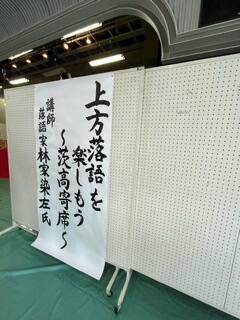 上方落語を
楽しもう
～茨高寄席～
講師
落語家 林家染左氏